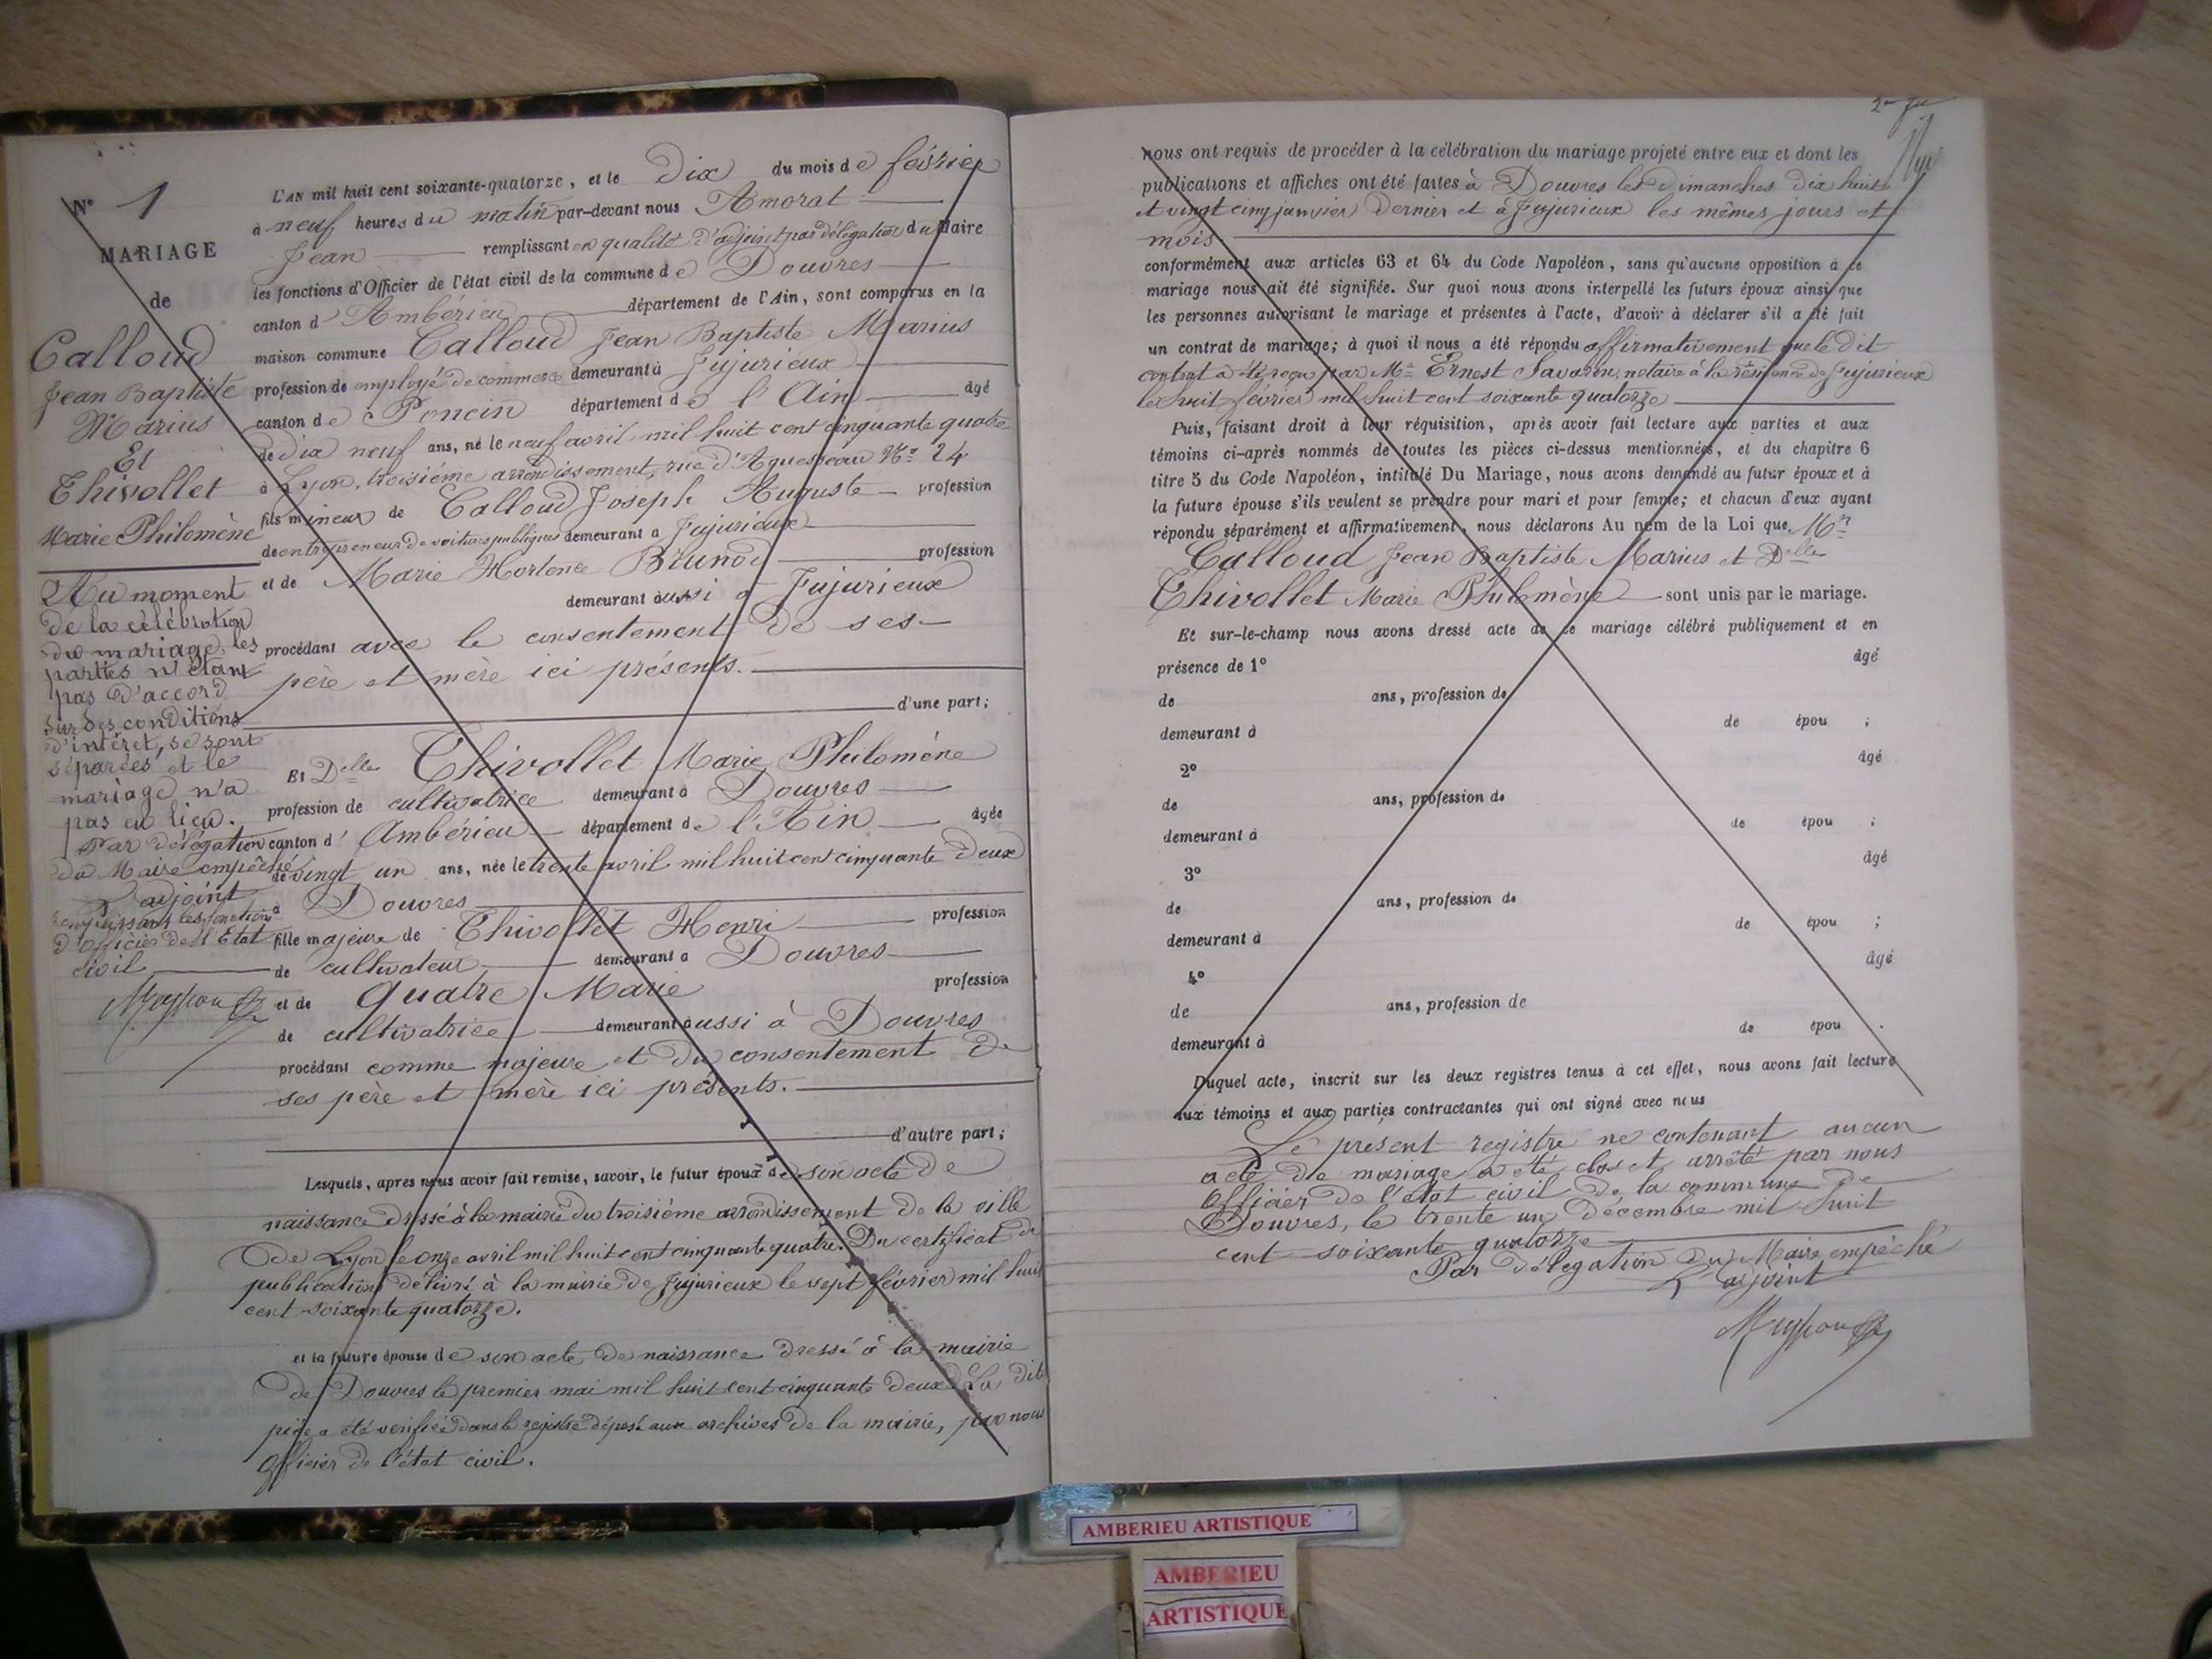 N° 1
MARIAGE
de
Calloud
Jean Baptiste
Marius
Et
Thivollet
Marie Philomène
Au moment
de la célébration
du mariage, les
parties n'étant
pas d'accord
sur des conditions
d'intéret, se sont
séparées et le
mariage n'a
pas eu lieu.
Par délégation
du Maire empêché
L'adjoint
remplissant les fonctions
d'officier de l'Etat
civil
L'AN mil huit cent soixante-quatorze, et le Dix du mois de février
à neuf heures du matin par-devant nous Amorat
Jean remplissant en qualité d'adjoint par délégation du Maire
les fonctions d'Officier de l'état civil de la commune de Douvres
canton d'Ambérieu département de l'Ain, sont comparus en la
maison commune Calloud Jean Baptiste Marius
profession de employé de commerce demeurant à Jujurieux
canton de Poncin département de l'Ain âgé
de dix neuf ans, né le neuf avril mil huit cent cinquante quatre
à Lyon, troisième arrondissement, rue d'Aguesseau N° 24
fils mineur de Calloud Joseph Auguste profession
de entrepreneur de voitures publiques demeurant à Jujurieux
et de Marie Hortence Brunod profession
demeurant aussi à Jujurieux
procédant avec le consentement de ses
père et mère ici présents.
d'une part;
Et Delle Thivollet Marie Philomène
profession de cultivatrice demeurant à Douvres
canton d'Ambérieu département de l'Ain âgée
de vingt un ans, née le trente avril mil huit cent cinquante deux
à Douvres
fille majeure de Thivollet Henri profession
de cultivateur demeurant à Douvres
et de Quatre Marie profession
de cultivatrice demeurant aussi à Douvres
procédant comme majeure et du consentement de
ses père et mère ici présents.
d'autre part;
Lesquels, après nous avoir fait remise, savoir, le futur époux de son acte de
naissance dressé à la mairie du troisième arrondissement de la ville
de Lyon le onze avril mil huit cent cinquante quatre. Du certificat de
publication délivré à la mairie de Jujurieux le sept février mil huit
cent soixante quatorze.
et la future épouse de son acte de naissance dressé à la mairie
de Douvres le premier mai mil huit cent cinquante deux. La dite
pièce a été vérifiée dans le registre déposé aux archives de la mairie, par nous
officier de l'état civil.
nous ont requis de procéder à la célébration du mariage projeté entre eux et dont les
publications et affiches ont été faites à Douvres les dimanches dix huit
et vingt cinq janvier dernier et à Jujurieux les mêmes jours et
mois.
conformément aux articles 63 et 64 du Code Napoléon, sans qu'aucune opposition à ce
mariage nous ait été signifiée. Sur quoi nous avons interpellé les futurs époux ainsi que
les personnes autorisant le mariage et présentes à l'acte, d'avoir à déclarer s'il a été fait
un contrat de mariage; à quoi il nous a été répondu affirmativement que le dit
contrat a été reçu par Me Ernest Savarin, notaire à la résidence de Jujurieux
le huit février mil huit cent soixante quatorze
Puis, faisant droit à leur réquisition, après avoir fait lecture aux parties et aux
témoins ci-après nommés de toutes les pièces ci-dessus mentionnées, et du chapitre 6
titre 5 du Code Napoléon, intitulé Du Mariage, nous avons demandé au futur époux et à
la future épouse s'ils veulent se prendre pour mari et pour femme; et chacun d'eux ayant
répondu séparément et affirmativement, nous déclarons Au nom de la Loi que Mr
Calloud Jean Baptiste Marius et Delle
Thivollet Marie Philomène sont unis par le mariage.
Et sur-le-champ nous avons dressé acte de ce mariage célébré publiquement et en
présence de 1° âgé
de ans, profession de
demeurant à de épou ;
2° âgé
de ans, profession de
demeurant à de épou ;
3° âgé
de ans, profession de
demeurant à de épou ;
4° âgé
de ans, profession de
demeurant à de épou .
Duquel acte, inscrit sur les deux registres tenus à cet effet, nous avons fait lecture
aux témoins et aux parties contractantes qui ont signé avec nous
Le présent registre ne contenant aucun
acte de mariage a été clos et arrêté par nous
Officier de l'état civil de la commune de
Douvres, le trente un décembre mil huit
cent soixante quatorze
Par délégation du Maire empêché
L'adjoint
AMBERIEU ARTISTIQUE
AMBERIEU
ARTISTIQUE